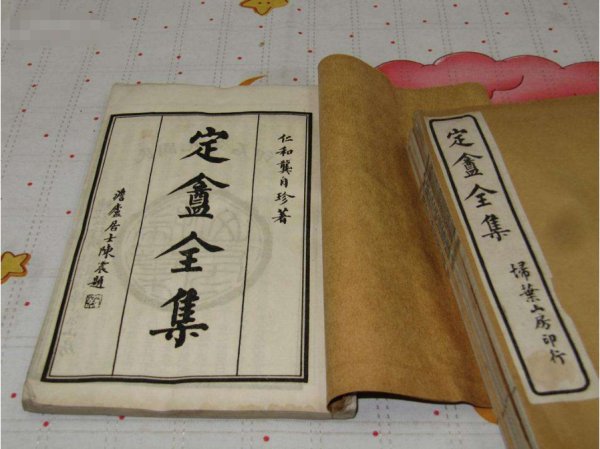 仁和龔自珍著
定盦全集
澹廬居士陳宸題
定盦全集
掃葉山房印行